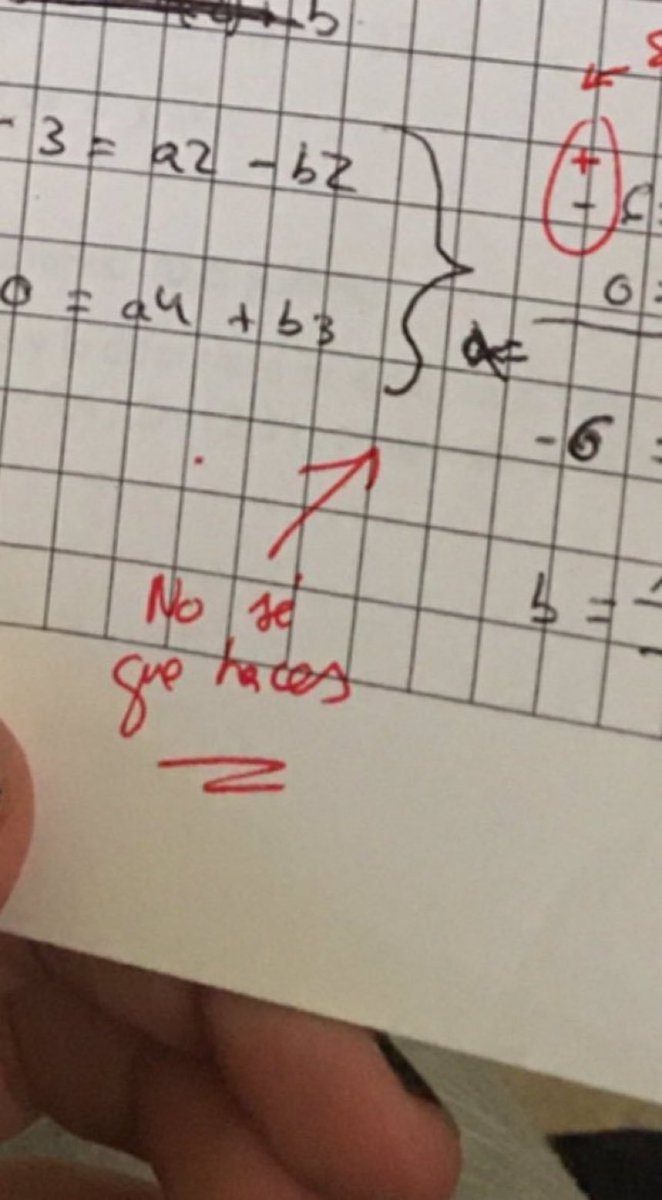 b
- 3 = a2 - b2
0 = a4 + b3
+
-
0 =
a =
- 6 =
b =
No sé
que haces